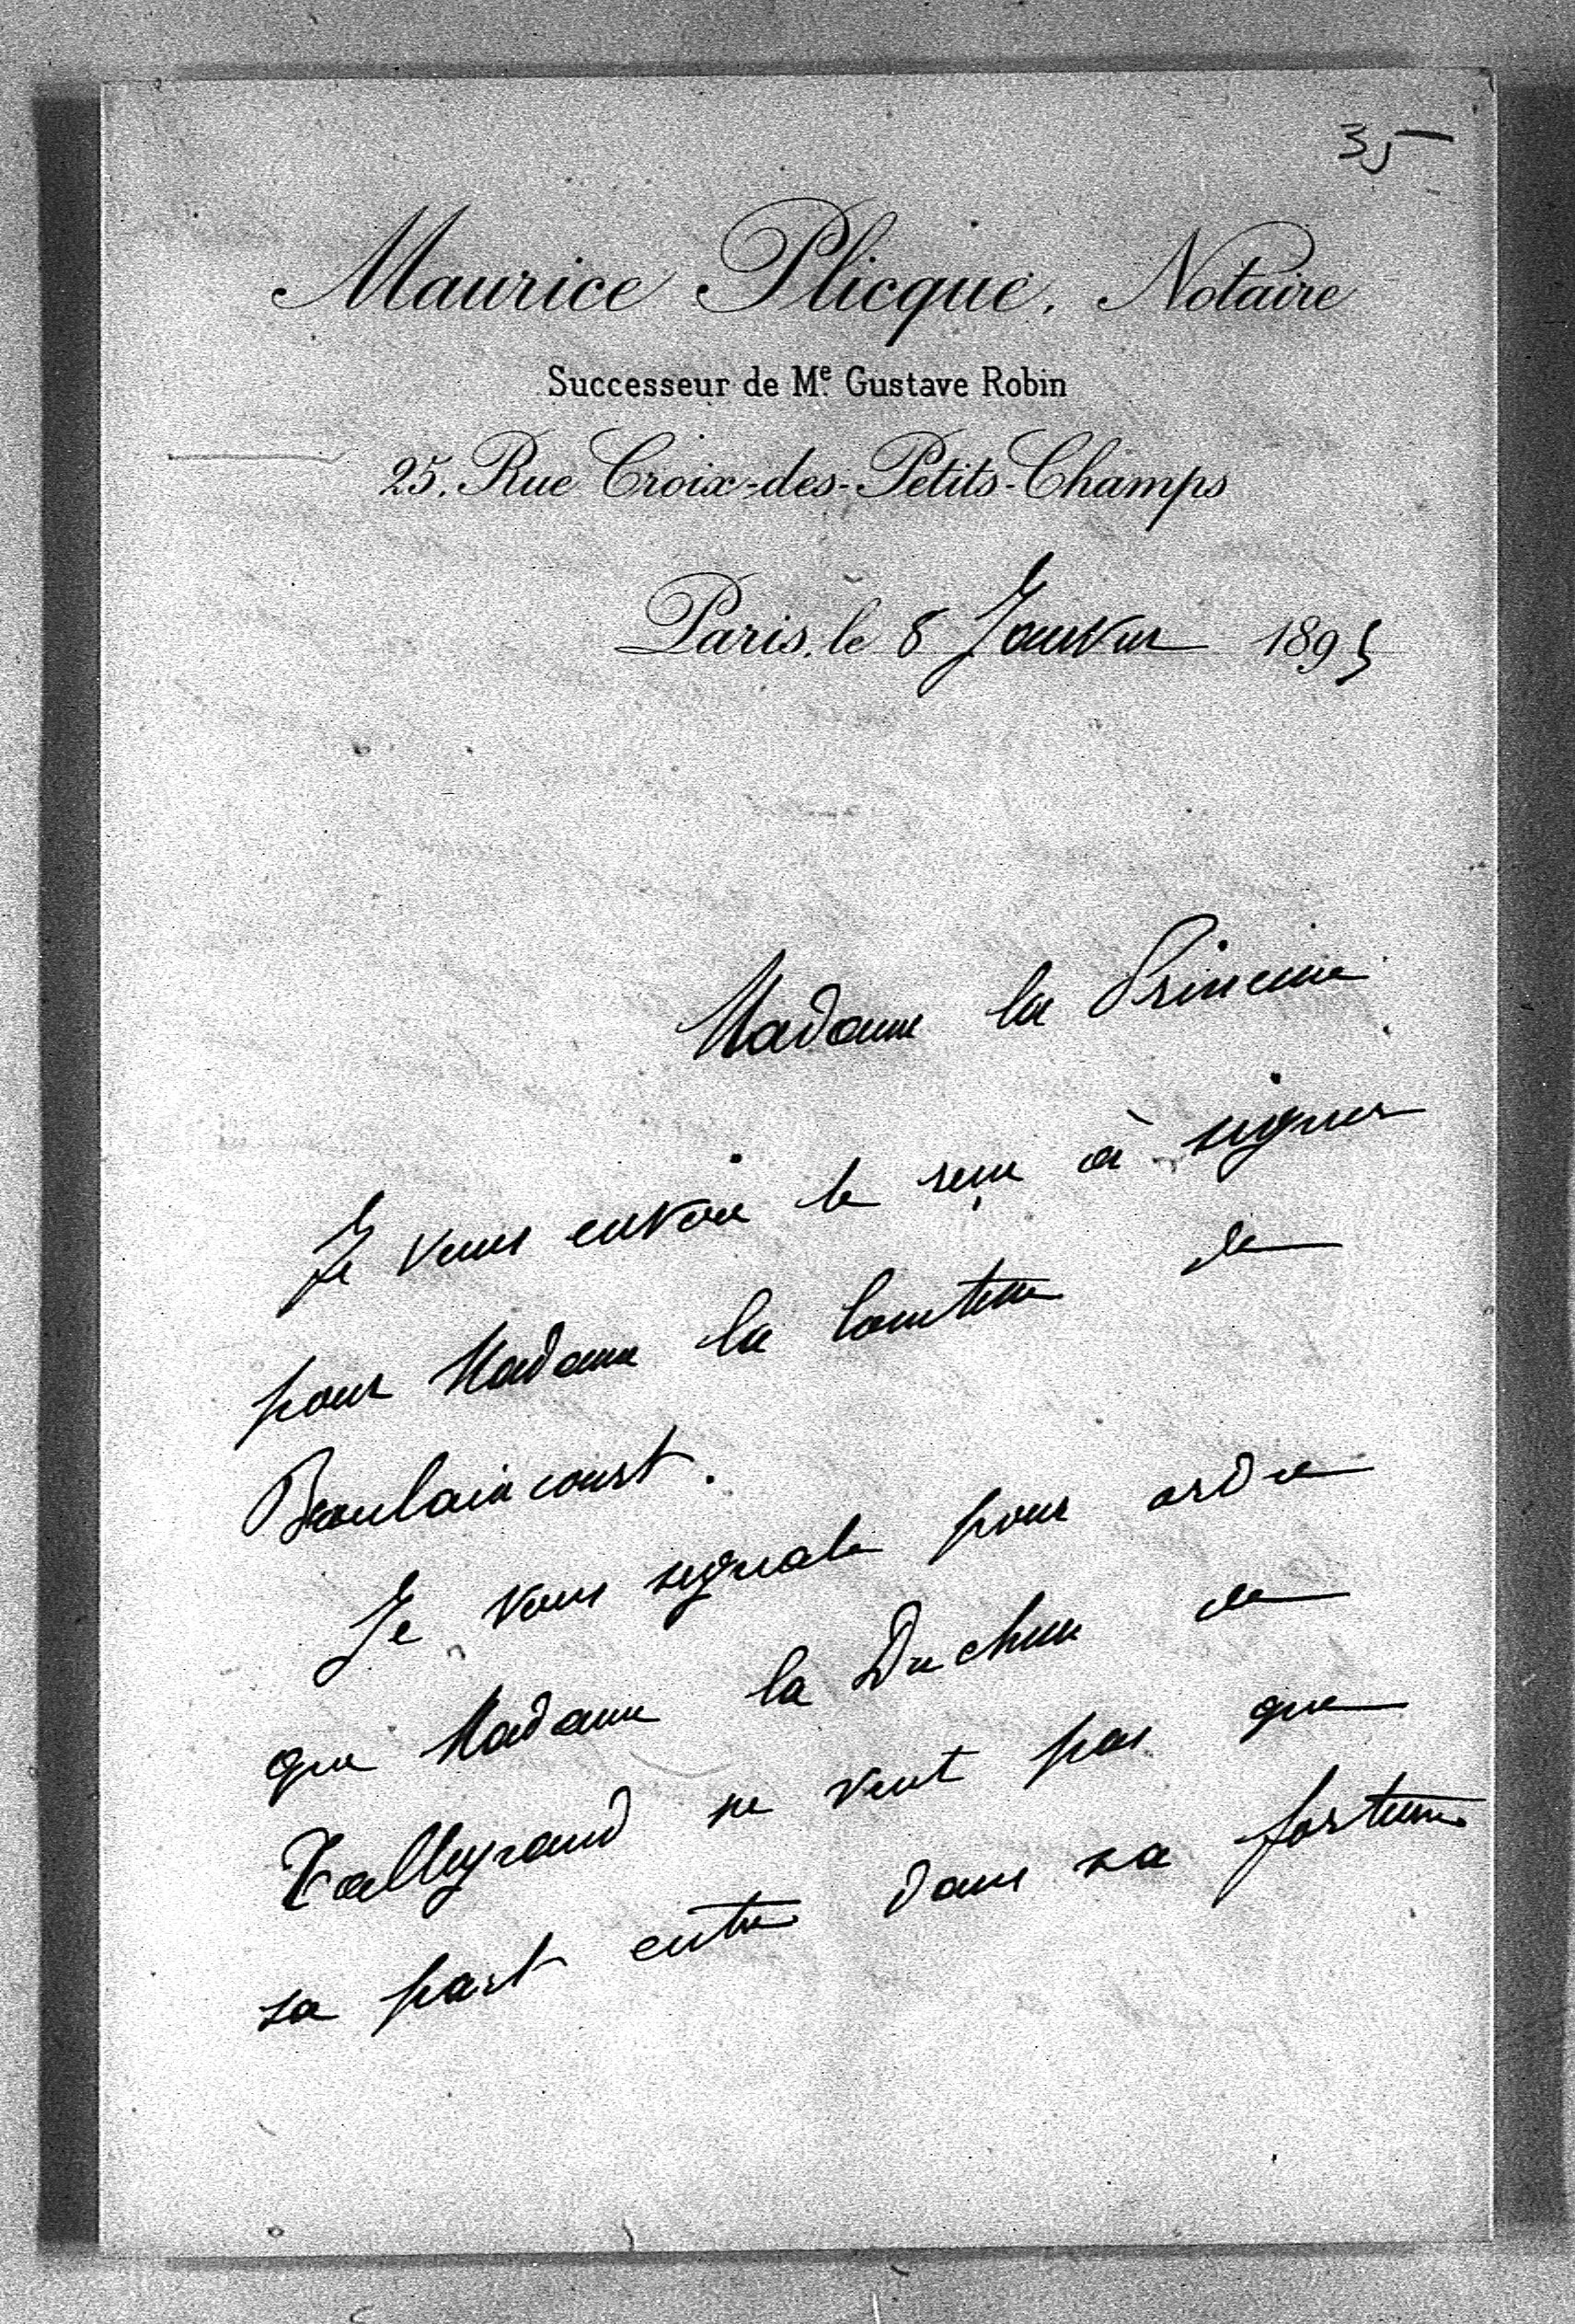 35
Maurice Plicque, Notaire
Successeur de Me Gustave Robin
25, Rue Croix-des-Petits-Champs
Paris, le 8 Janvier 1895
Madame la Princesse
Je vous envoie le reçu à signer
pour Madame la Comtesse de
Beaulaincourt.
Je vous signale pour ordre
que Madame la Duchesse de
Talleyrand ne veut pas que
sa part entre dans sa fortune